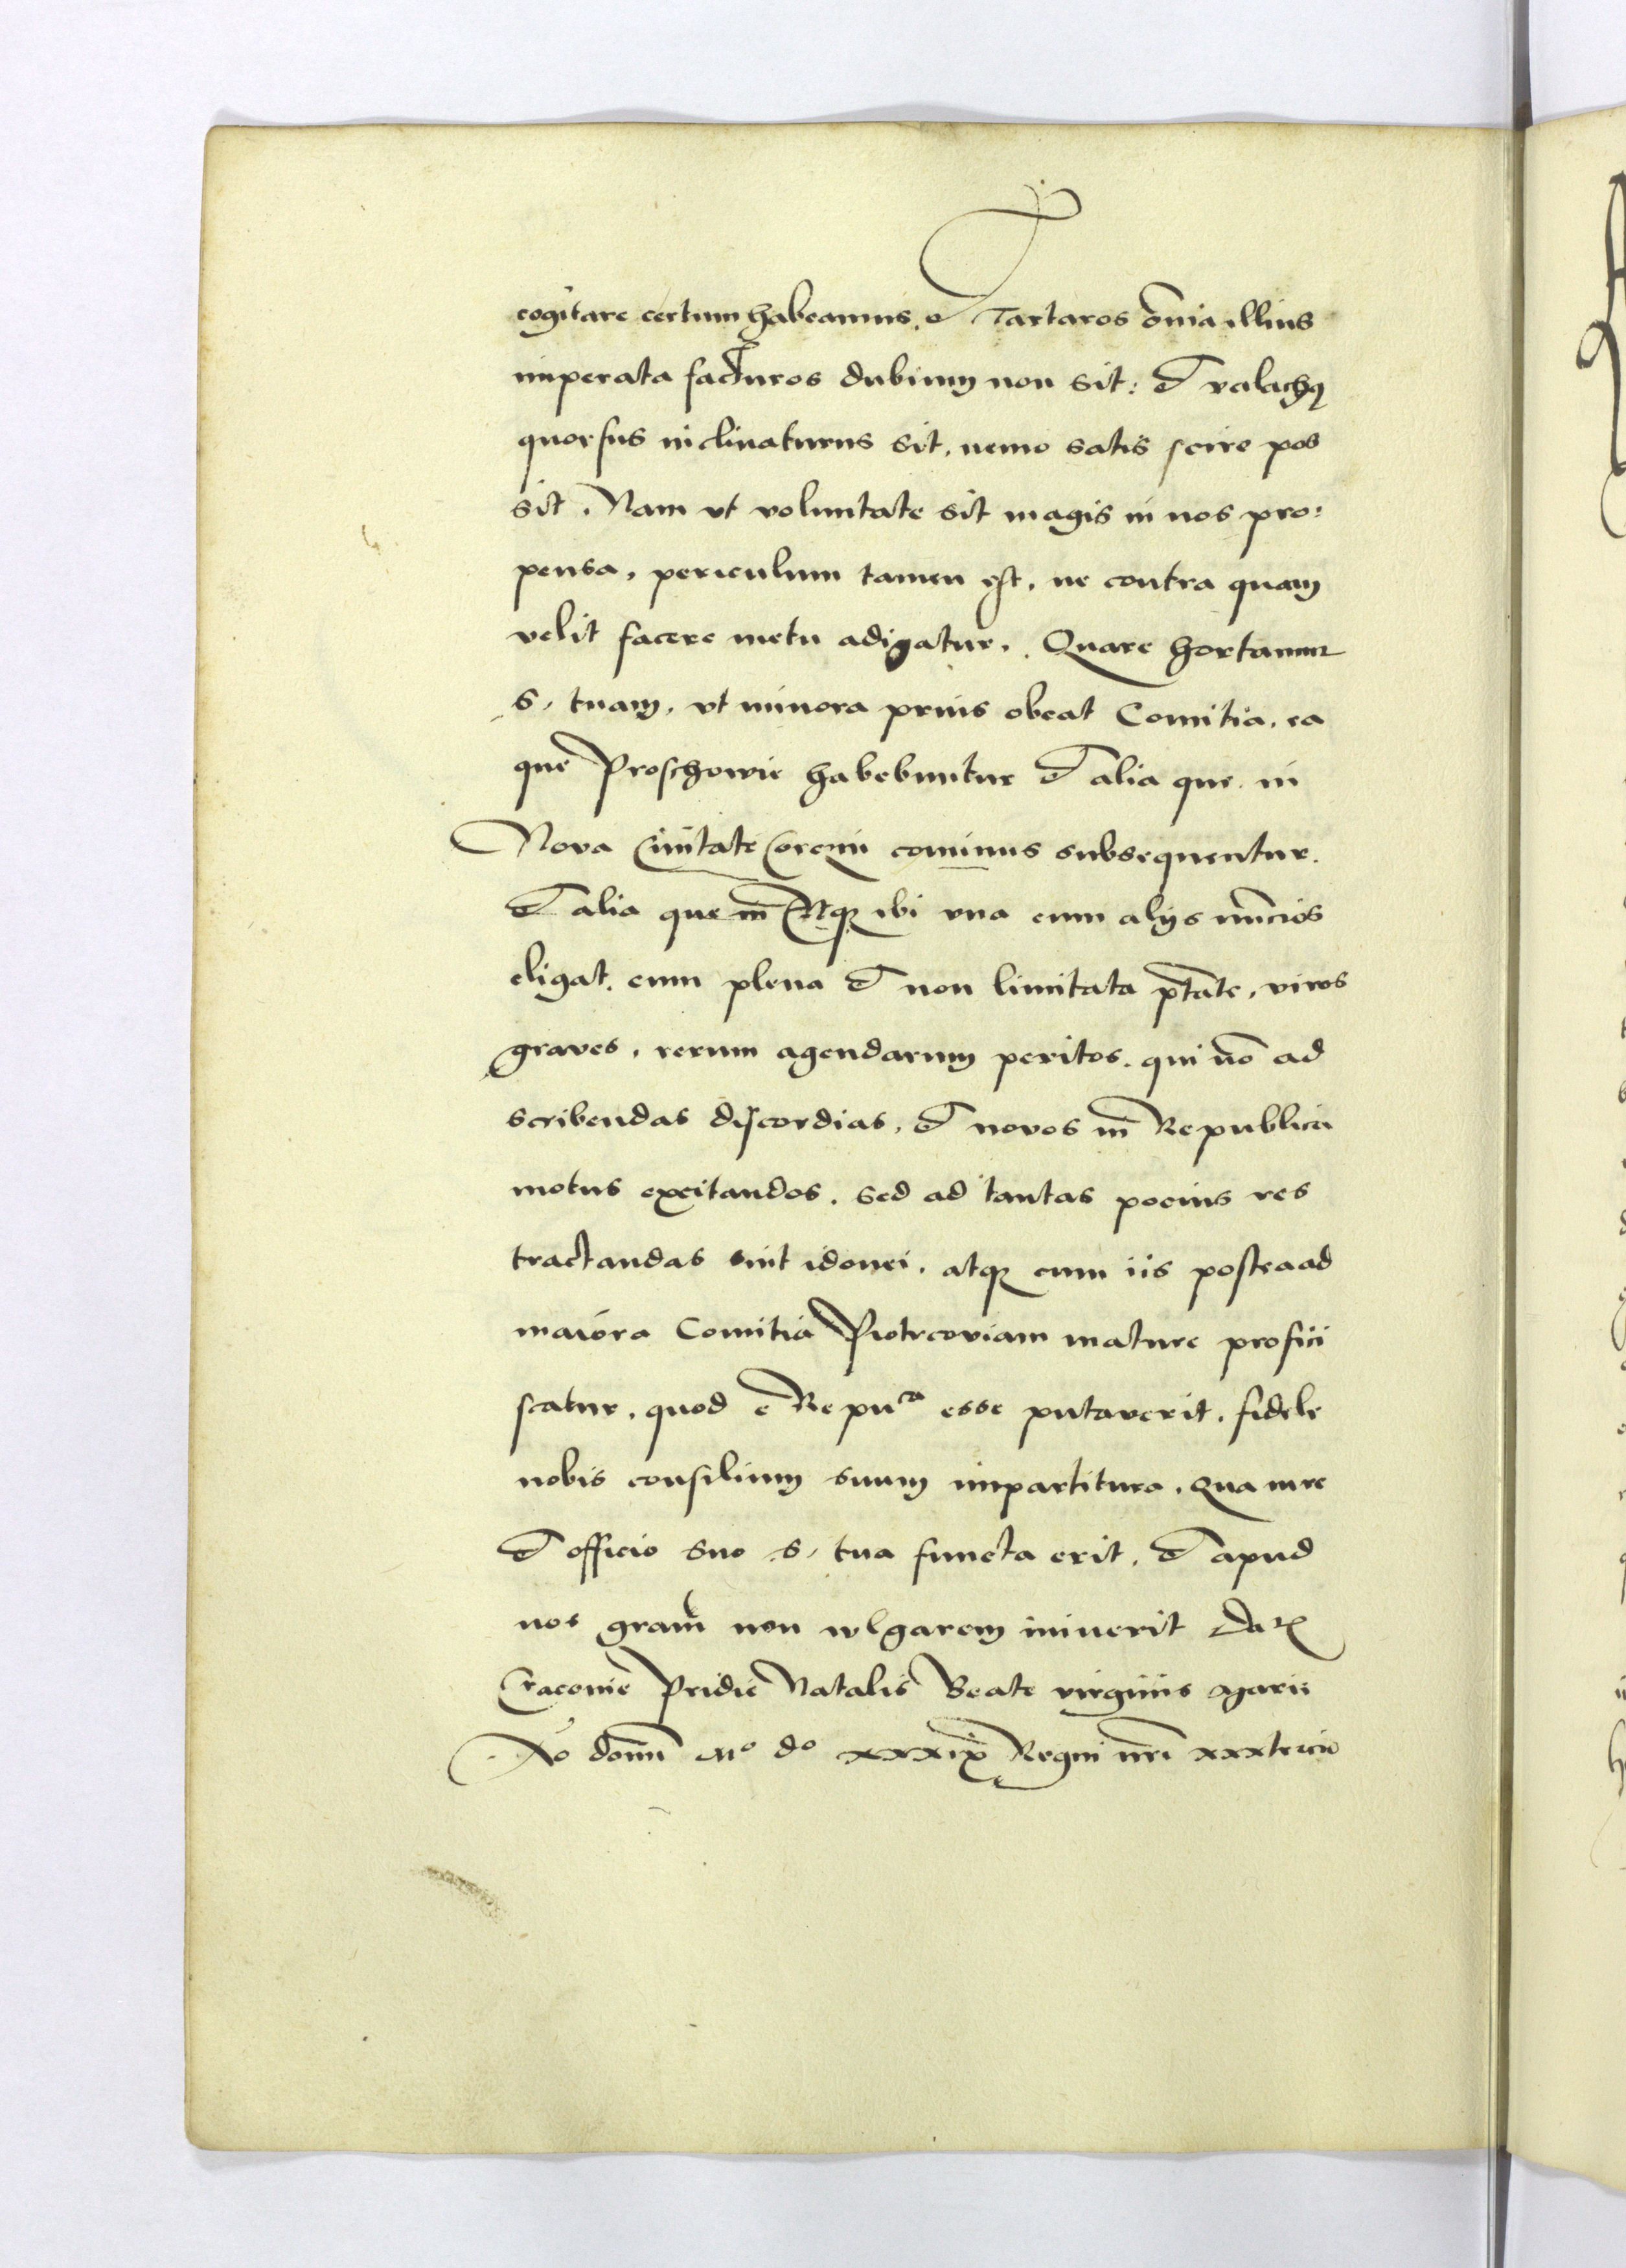 cogitare certum habeamus. et Tartaros om̄ia illius
imperata facturos dubium non sit: et valachꝯ
quorsus inclinaturus sit, nemo satis scire pos
sit. Nam vt voluntate sit magis in nos pro:
pensa, periculum tamen est, ne contra quam
velit facere metu adigatur. Quare hortamur
S. tuam, vt minora prius obeat Comitia, ea
que Proschowie habebuntur et alia que in
Nova Ciuitate Corczin cominus subsequentur.
et alia que in Atqꝫ ibi vna cum alijs nūcios
eligat, cum plena et non limitata p̄tate, viros
graves, rerum agendarum peritos, qui nō ad
scribendas discordias, et novos in Republica
motus excitandos, sed ad tantas pocius res
tractandas sint idonei, atqꝫ cum iis postea ad
maiora Comitia Piotrcoviam mature profici
scatur, quod e Repuca esse putaverit, fidele
nobis consilium suum impartitura, Qua in re
et officio suo S. tua functa erit, et apud
nos gratiā non wlgarem iniuerit Datꝭ
Cracovie Pridie Natalis Beate virginis Marie
Ao domī Mo do xxxix Regni nr̄i xxxtricio